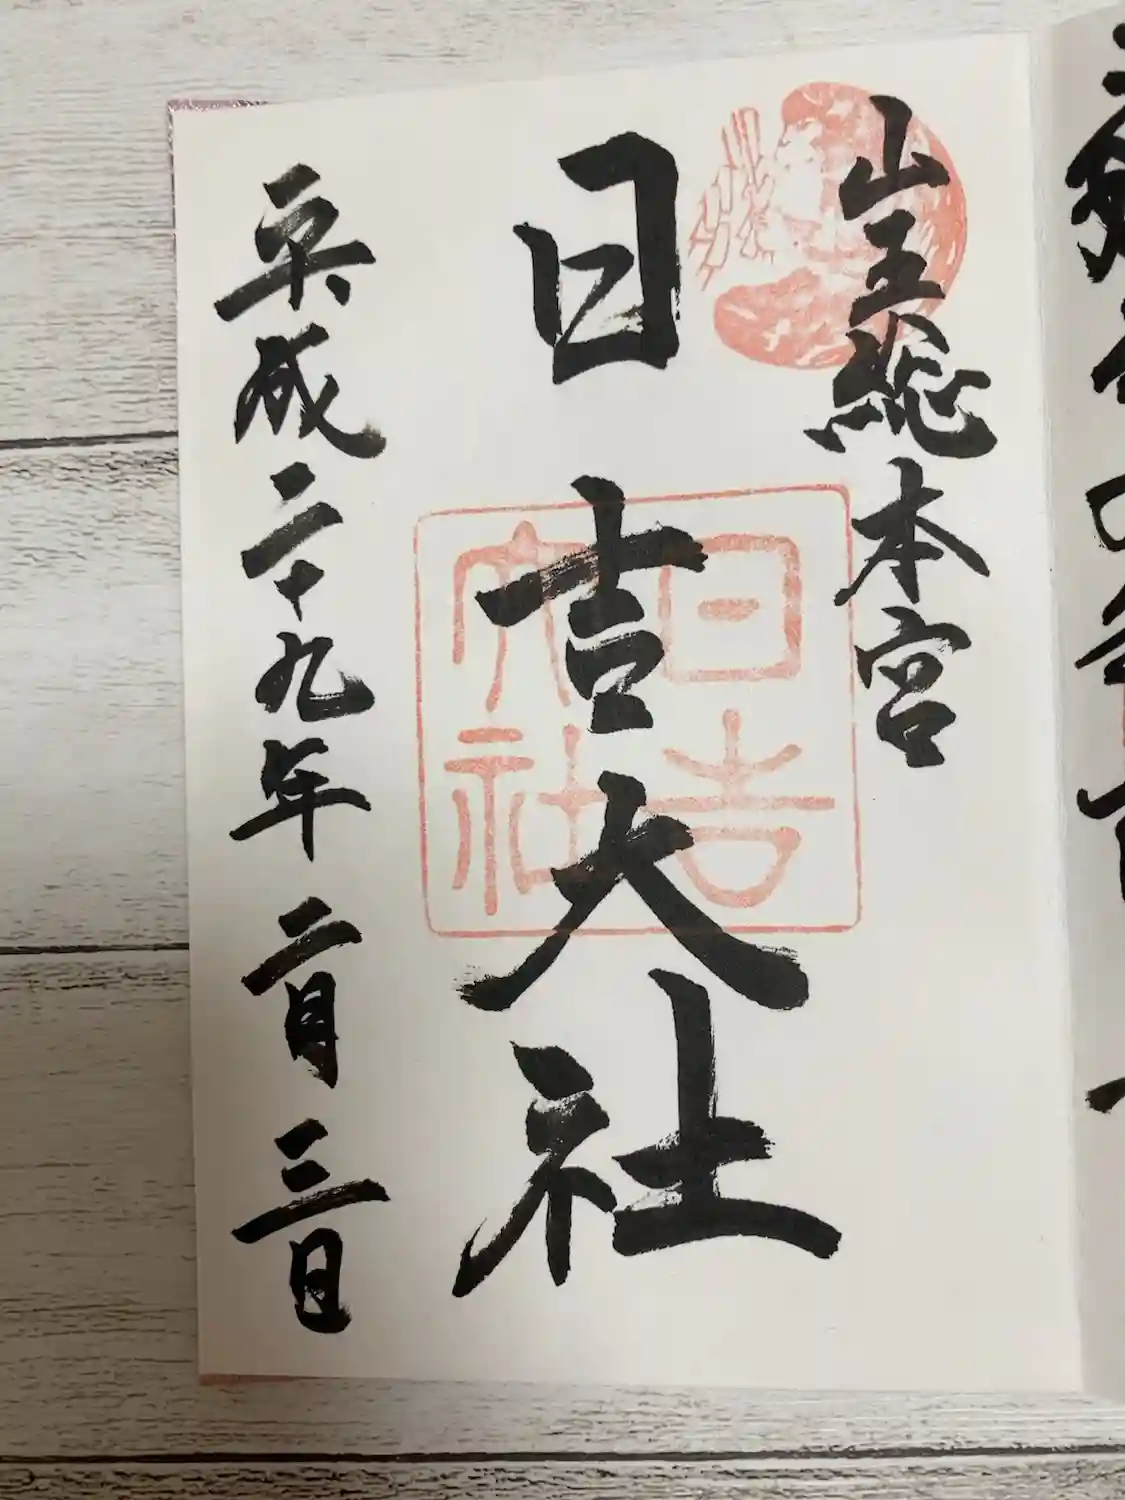 山王総本宮
日吉大社
日吉大社
平成二十九年二月三日